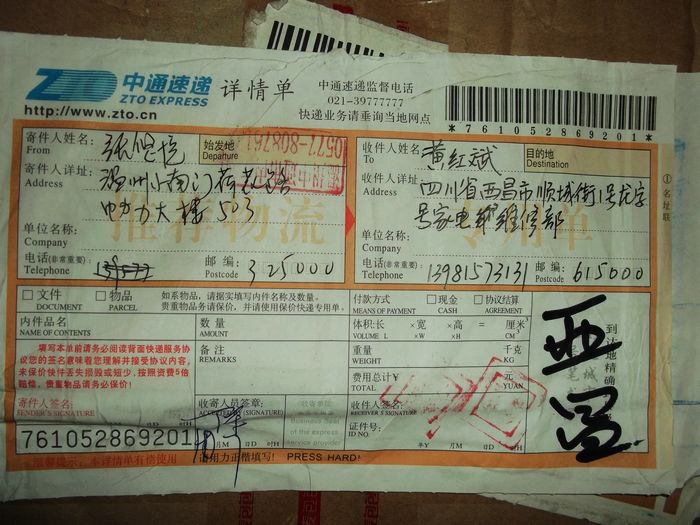 中通速递
ZTO EXPRESS
详情单
中通速递监督电话
021-39777777
http://www.zto.cn
快递业务请垂询当地网点
*761052869201*
寄件人姓名:
From
始发地
Departure
0577-8087
收件人姓名:
To
黄红斌
目的地
Destination
寄件人详址:
Address
温州小南门
电力大楼503
收件人详址:
Address
四川省西昌市顺城街1号龙字
号家电 维修部
推荐物流
专用单
单位名称:
Company
单位名称:
Company
电话(非常重要)
Telephone
邮编:
Postcode
325000
电话(非常重要)
Telephone
13981573131
邮编:
Postcode
615000
①名址联
文件
DOCUMENT
物品
PARCEL
如系物品,请据实填写内件名称及数量。
贵重物品务请保价,并请使用保价快递专用单。
付款方式
MEANS OF PAYMENT
现金
CASH
协议结算
AGREEMENT
内件品名
NAME OF CONTENTS
数量
AMOUNT
体积:长 ×宽 ×高 = 厘米³
VOLUME L ×W ×H CM³
填写本单前请务必阅读背面快递服务协
议!您的签名意味着您理解并接受协议内容。
未保价快件丢失损毁或短少,按照资费5倍
赔偿。贵重物品请务必保价!
备注
REMARKS
重量
WEIGHT
千克
KG
费用总计¥
TOTAL
元
YUAN
到达地精确
西昌
寄件人签名:
SENDER'S SIGNATURE
收寄人员签章:
ACCEPTED (SIGNATURE)
收寄单位
Business Seal
of the express
service provider
收件人签名:
RECEIVER'S SIGNATURE
证件号:
ID NO.
761052869201
年Y 月M 日D 时H
温馨提示:本详情单有偿使用
请用力正楷填写!
PRESS HARD!